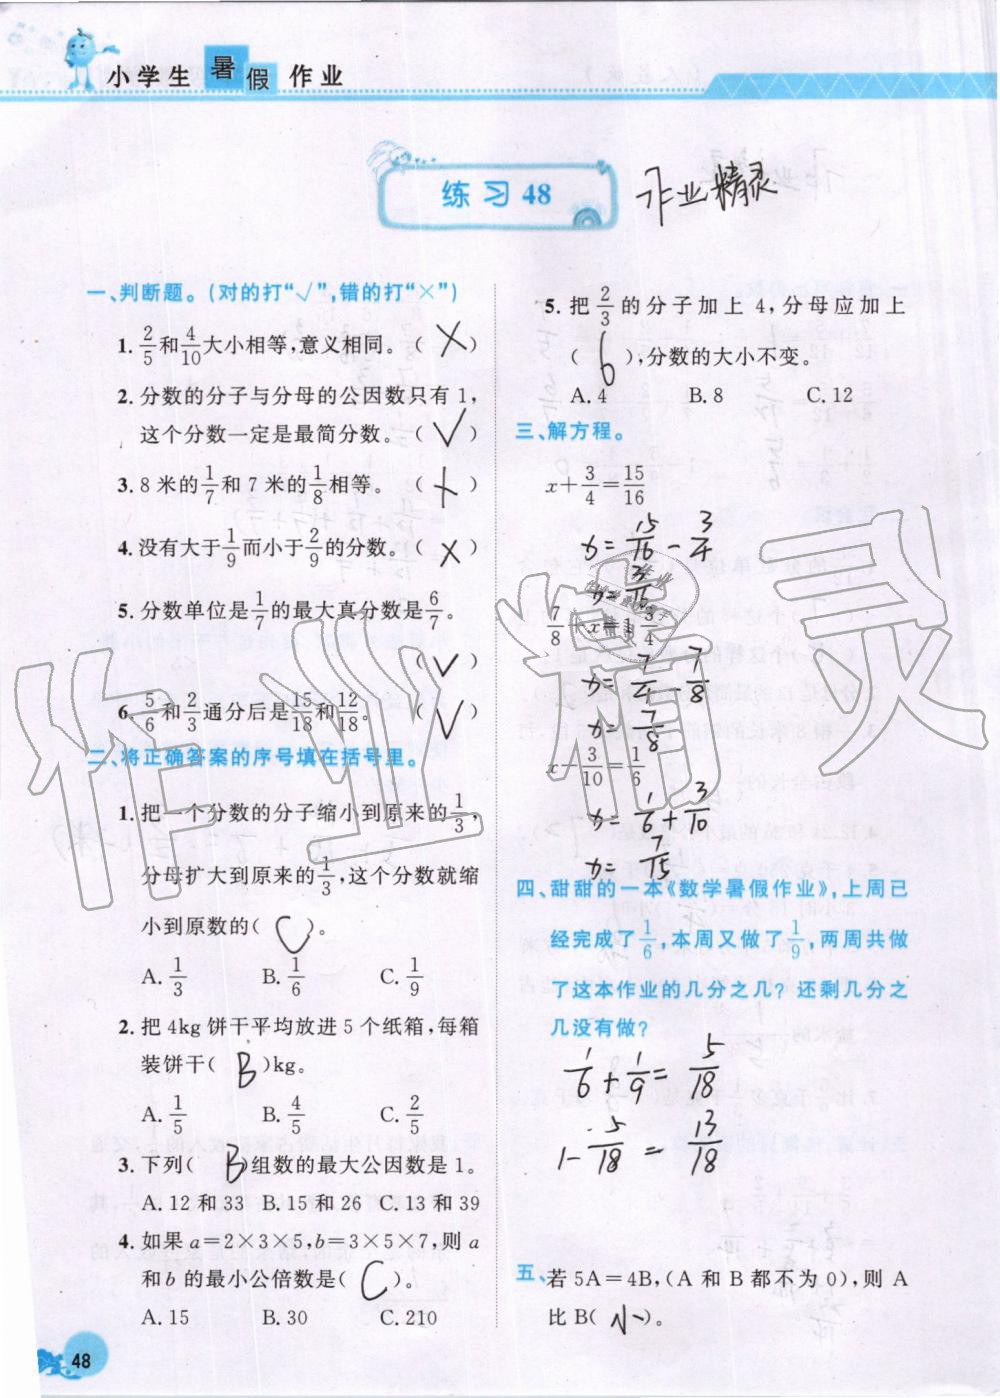 小学生暑假作业
练习48
作业精灵
一、判断题。(对的打“√”,错的打“×”)
1. 2/5和4/10大小相等,意义相同。( × )
2. 分数的分子与分母的公因数只有1,
这个分数一定是最简分数。( √ )
3. 8米的1/7和7米的1/8相等。( + )
4. 没有大于1/9而小于2/9的分数。( × )
5. 分数单位是1/7的最大真分数是6/7。
( √ )
6. 5/6和2/3通分后是15/18和12/18。( √ )
二、将正确答案的序号填在括号里。
1. 把一个分数的分子缩小到原来的1/3,
分母扩大到原来的1/3,这个分数就缩
小到原数的( C )。
A. 1/3 B. 1/6 C. 1/9
2. 把4kg饼干平均放进5个纸箱,每箱
装饼干( B )kg。
A. 1/5 B. 4/5 C. 2/5
3. 下列( B )组数的最大公因数是1。
A. 12和33 B. 15和26 C. 13和39
4. 如果a=2×3×5,b=3×5×7,则a
和b的最小公倍数是( C )。
A. 15 B. 30 C. 210
48
5. 把2/3的分子加上4,分母应加上
( 6 ),分数的大小不变。
A. 4 B. 8 C. 12
三、解方程。
x+3/4=15/16
x=15/16-3/4
x=3/16
x=7/8
x-3/10=1/6
x=1/6+3/10
x=7/15
四、甜甜的一本《数学暑假作业》,上周已
经完成了1/6,本周又做了1/9,两周共做
了这本作业的几分之几?还剩几分之
几没有做?
1/6+1/9=5/18
1-5/18=13/18
五、若5A=4B,(A和B都不为0),则A
比B( 小 )。
作业精灵